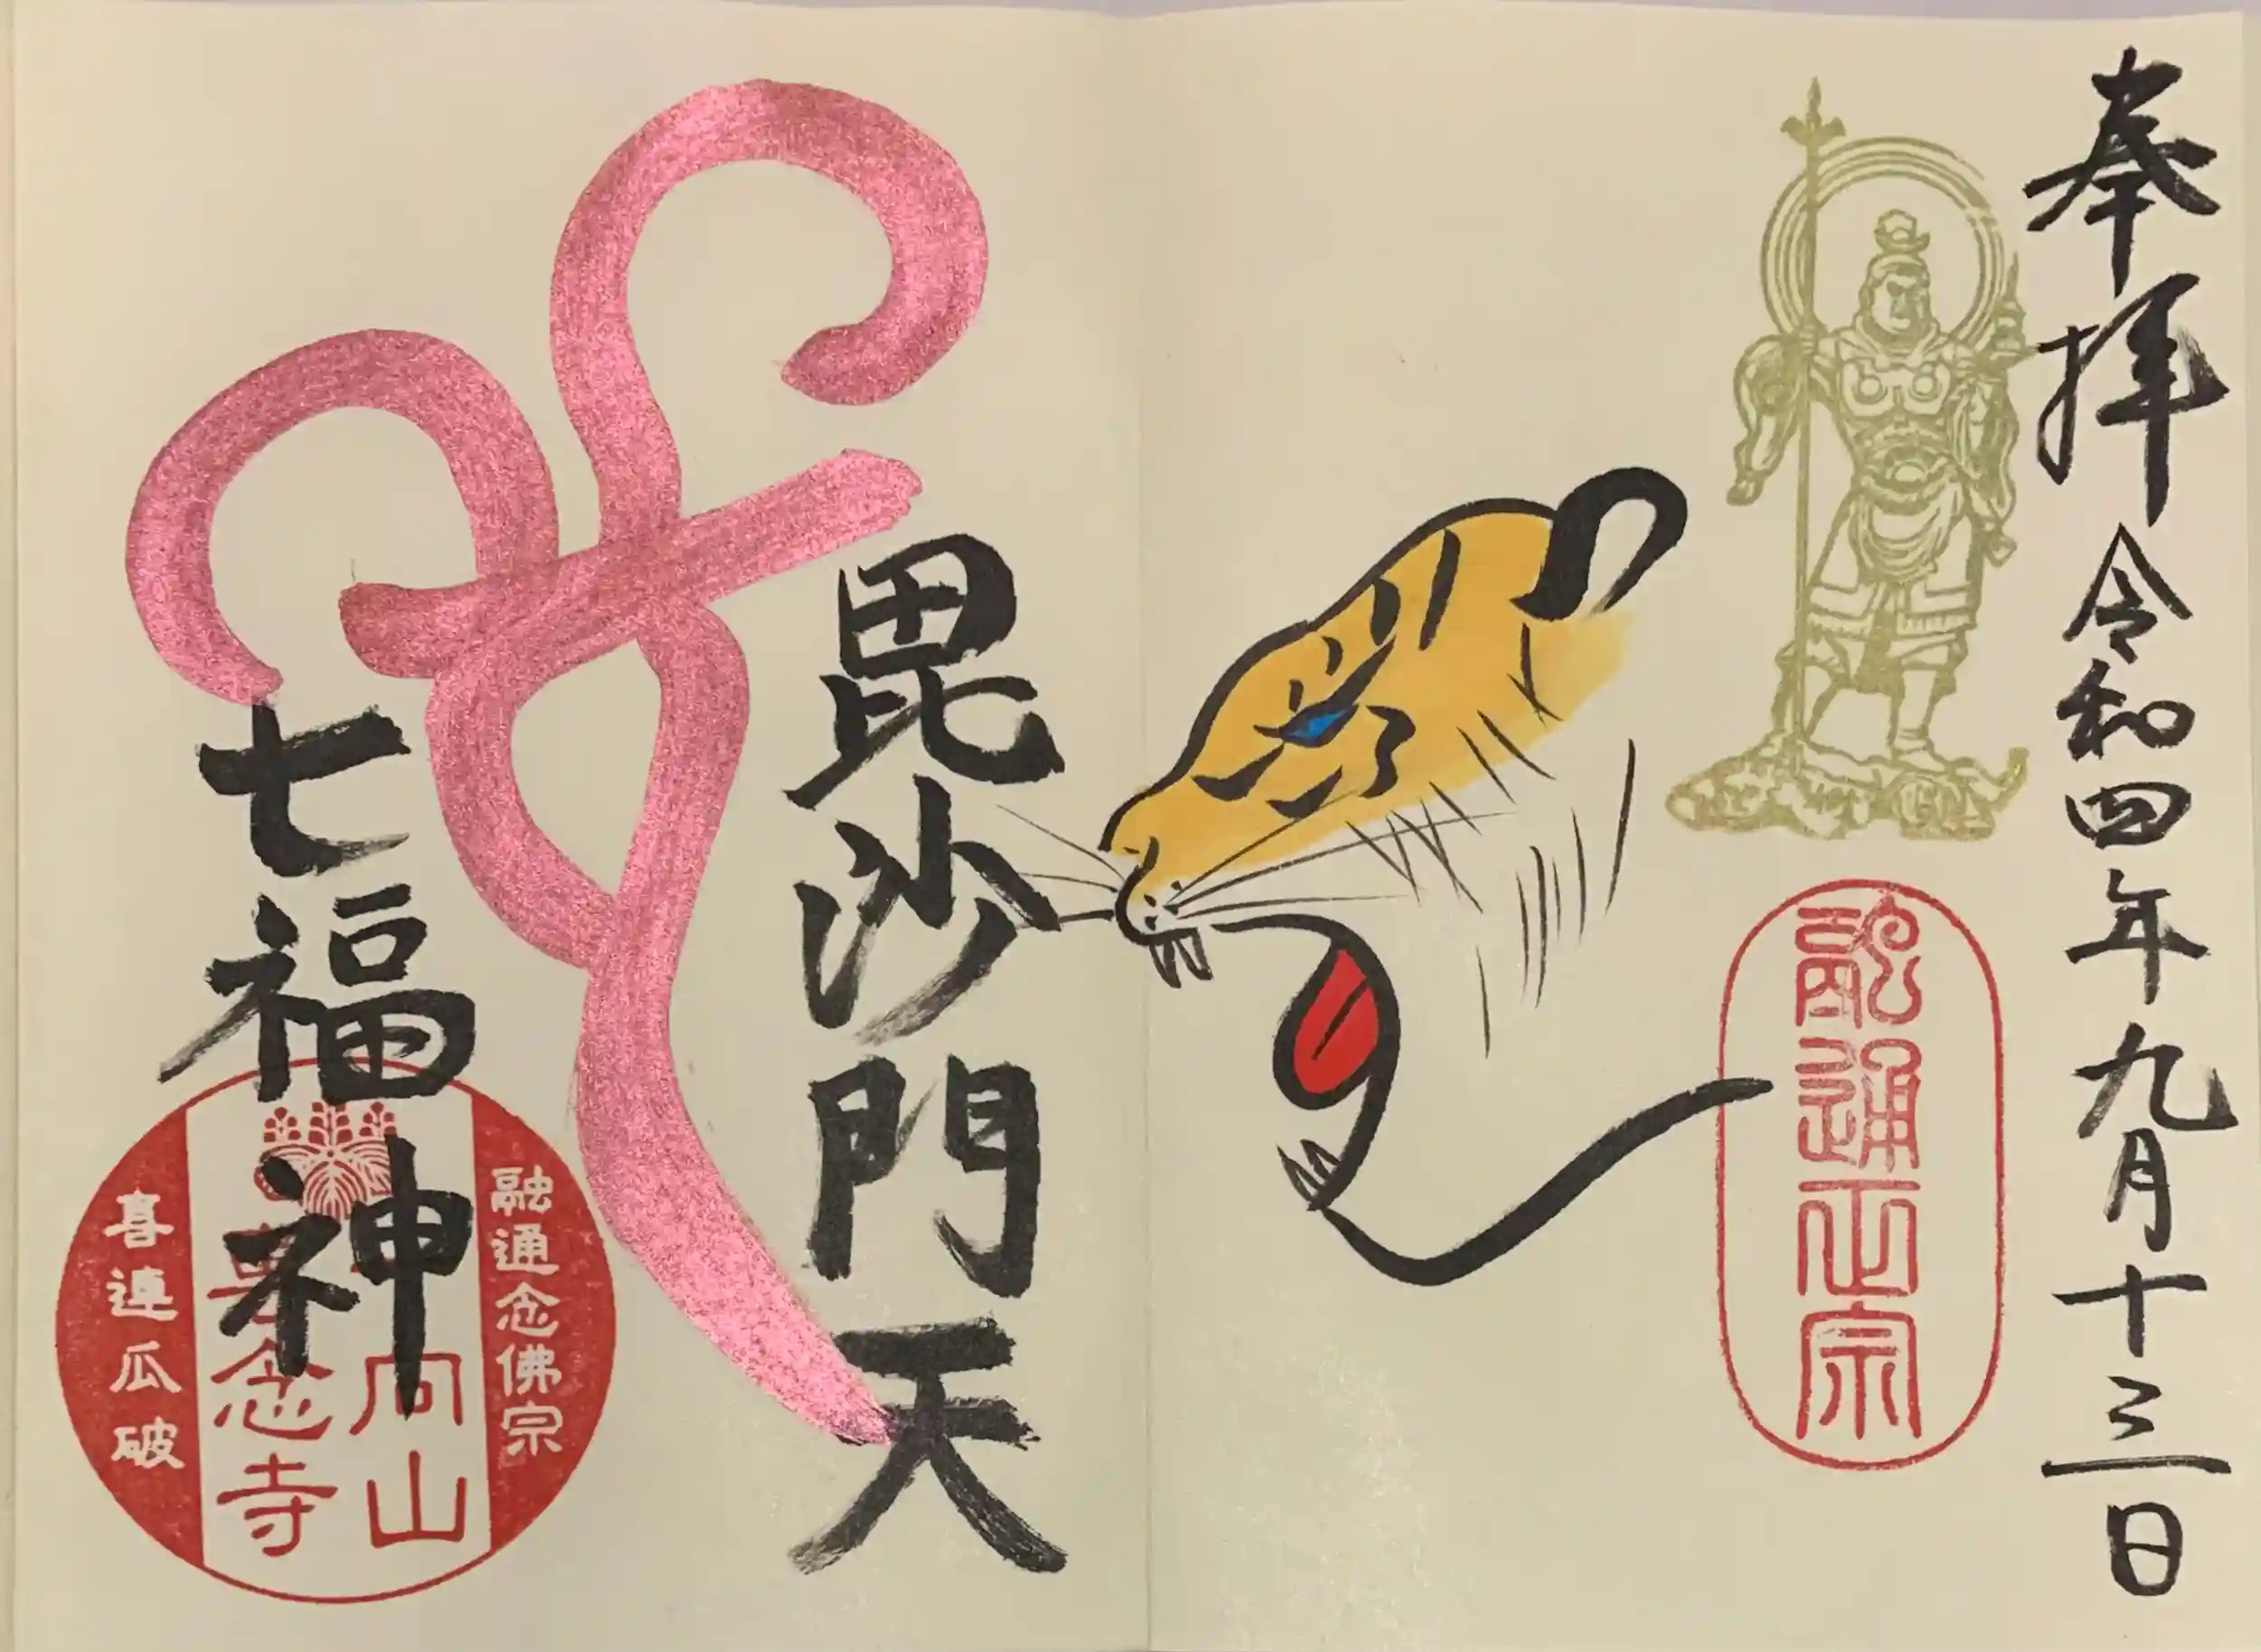 奉拝 令和四年九月十三日
融通正宗
毘沙門天
七福神
融通念佛宗
向山
念寺
喜連瓜破